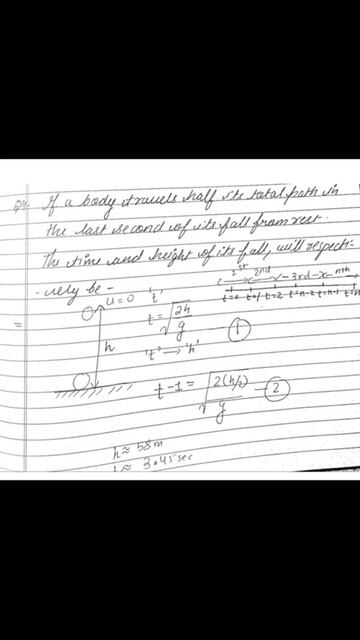 Q4. If a body travels half its total path in
the last second of its fall from rest.
The time and height of its fall, will respecti-
-vely be -
1st 2nd 3rd nth
t=0 t=1 t=2 t=n-2 t=n-1 t=n
u=0 't'
t = √(2h/g) ①
h
't' → 'h'
t-1 = √(2(h/2)/g) ②
h ≈ 58m
t ≈ 3.45 sec